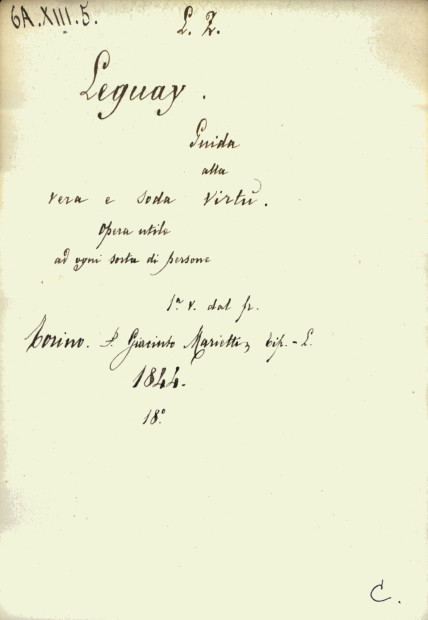 6A.XIII.5.
L. Z.
Leguay.
Guida
alla
vera e soda virtù.
Opera utile
ad ogni sorta di persone
1ª v. dal fr.
Torino. P. Giacinto Marietti, tip.-L.
1844.
18°
C.